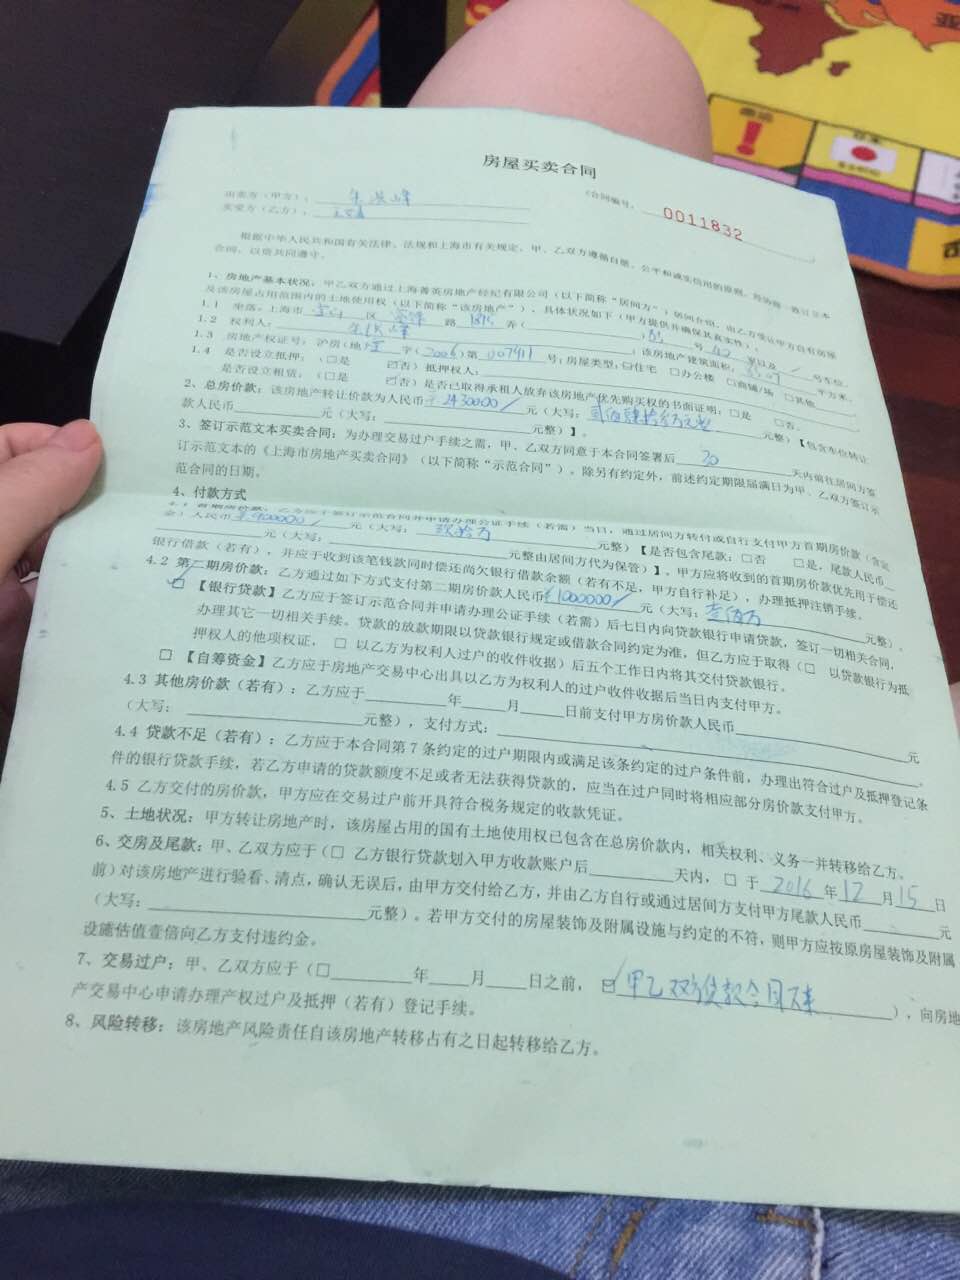 房屋买卖合同
(合同编号:
0011832
出卖方(甲方):
买受方(乙方):
根据中华人民共和国有关法律、法规和上海市有关规定,甲、乙双方遵循自愿、公平和诚实信用的原则,经协商一致订立本
合同,以资共同遵守。
1、房地产基本状况:甲乙双方通过上海菁英房地产经纪有限公司(以下简称“居间方”)居间介绍,由乙方受让甲方自有房屋
及该房屋占用范围内的土地使用权(以下简称“该房地产”),具体状况如下(甲方提供并确保其真实性):
1.1 坐落:上海市 区 路 弄( 号 室以及 号车位。
1.2 权利人: ;该房地产建筑面积: 平方米。
1.3 房地产权证号:沪房(地) 字(2006)第007911号;房屋类型:☑住宅 □办公楼 □商铺/场 □其他
1.4 是否设立抵押:(□是 ☑否)抵押权人:
是否设立租赁:(□是 ☑否)是否已取得承租人放弃该房地产优先购买权的书面证明:□是 □否。
2、总房价款:该房地产转让价款为人民币 2430000 元(大写: 元整)【包含车位转让
款人民币 元(大写: 元整)】。
3、签订示范文本买卖合同:为办理交易过户手续之需,甲、乙双方同意于本合同签署后 30 天内前往居间方签
订示范文本的《上海市房地产买卖合同》(以下简称“示范合同”)。除另有约定外,前述约定期限届满日为甲、乙双方签订示
范合同的日期。
4、付款方式
4.1 首期房价款:乙方应于签订示范合同并申请办理公证手续(若需)当日,通过居间方转付或自行支付甲方首期房价款(含定
金)人民币 900000 元(大写: 玖拾万 元整)【是否包含尾款:□否 □是,尾款人民币
元(大写: 元整由居间方代为保管)】。甲方应将收到的首期房价款优先用于偿还
银行借款(若有),并应于收到该笔钱款同时偿还尚欠银行借款余额(若有不足,甲方自行补足),办理抵押注销手续。
4.2 第二期房价款:乙方通过如下方式支付第二期房价款人民币 1000000 元(大写: 壹佰万 元整)。
☑【银行贷款】乙方应于签订示范合同并申请办理公证手续(若需)后七日内向贷款银行申请贷款,签订一切相关合同,
办理其它一切相关手续。贷款的放款期限以贷款银行规定或借款合同约定为准,但乙方应于取得(□ 以贷款银行为抵
押权人的他项权证, □ 以乙方为权利人过户的收件收据)后五个工作日内将其交付贷款银行。
□【自筹资金】乙方应于房地产交易中心出具以乙方为权利人的过户收件收据后当日内支付甲方。
4.3 其他房价款(若有):乙方应于 年 月 日前支付甲方房价款人民币 元
(大写: 元整),支付方式: 。
4.4 贷款不足(若有):乙方应于本合同第7条约定的过户期限内或满足该条约定的过户条件前,办理出符合过户及抵押登记条
件的银行贷款手续,若乙方申请的贷款额度不足或者无法获得贷款的,应当在过户同时将相应部分房价款支付甲方。
4.5 乙方交付的房价款,甲方应在交易过户前开具符合税务规定的收款凭证。
5、土地状况:甲方转让房地产时,该房屋占用的国有土地使用权已包含在总房价款内,相关权利、义务一并转移给乙方。
6、交房及尾款:甲、乙双方应于(□ 乙方银行贷款划入甲方收款账户后 天内, □ 于 2016 年 12 月 15 日
前)对该房地产进行验看、清点,确认无误后,由甲方交付给乙方,并由乙方自行或通过居间方支付甲方尾款人民币 元
(大写: 元整)。若甲方交付的房屋装饰及附属设施与约定的不符,则甲方应按原房屋装饰及附属
设施估值壹倍向乙方支付违约金。
7、交易过户:甲、乙双方应于(□ 年 月 日之前, ☑ 甲乙双方贷款合同 ),向房地
产交易中心申请办理产权过户及抵押(若有)登记手续。
8、风险转移:该房地产风险责任自该房地产转移占有之日起转移给乙方。